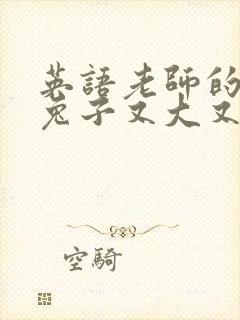 英語老師的
兔子又大又
空騎